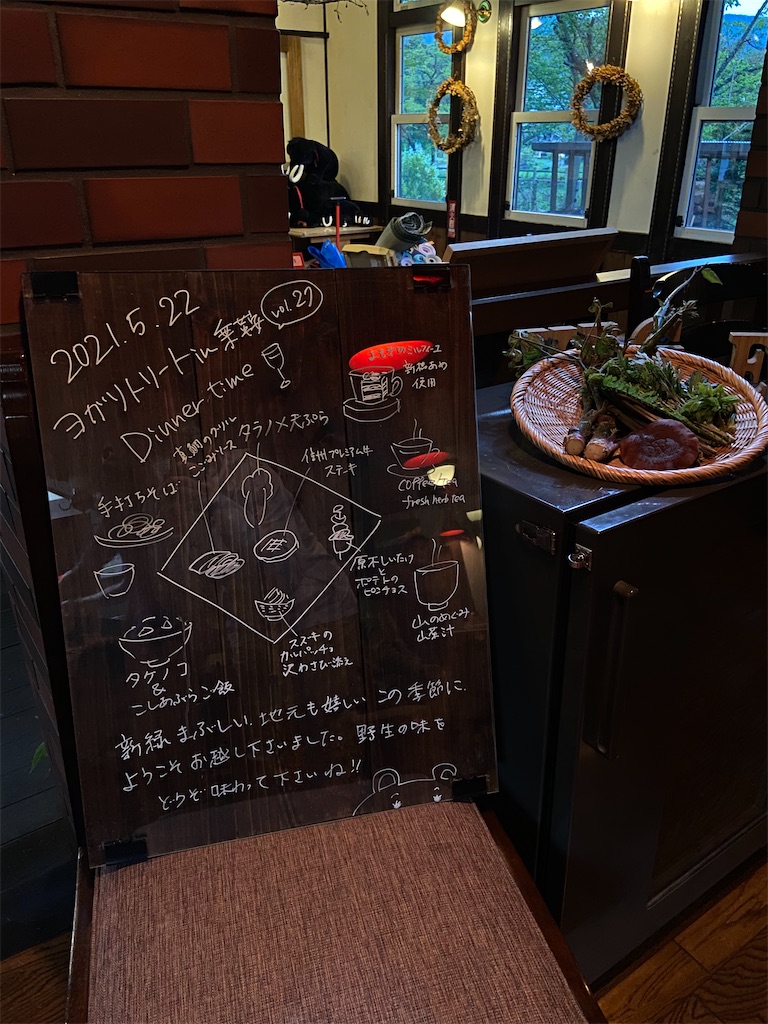 2021.5.22
ヨガリトリート in 
vol.27
Dinner time
よもぎのミルフィーユ
新穂あめ
使用
真鯛のグリル
こごみソース
タラノメ天ぷら
信州プレミアム牛
ステーキ
coffee & tea
-fresh herb tea
手打ちそば
原木しいたけ
と
ポテトの
ピンチョス
山のめぐみ
山菜汁
スズキの
カルパッチョ
沢わさび添え
タケノコ
&
こしあぶらご飯
新緑まぶしい、地元も嬉しいこの季節に、
ようこそお越し下さいました。野生の味を
どうぞ味わって下さいね!!